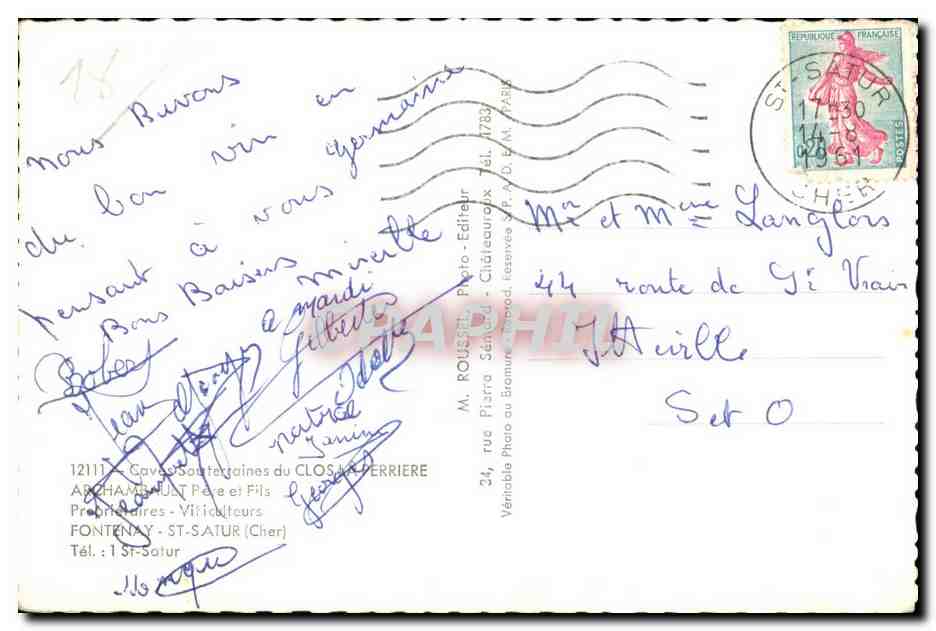 18
Nous Buvons
du bon vin en
pensant à vous germaine
Bons Baisers
Mireille
a mardi
Robert
Jean
Gilberte
Odette
patrice
Janine
Georges
Monique
12111 - Caves Souterraines du CLOS LA PERRIERE
ARCHAMBAULT Père et Fils
Propriétaires - Viticulteurs
FONTENAY - ST-SATUR (Cher)
Tél. : 1 St-Satur
M. ROUSSEL, Photo - Editeur
24, rue Pierre Sénard - Châteauroux Tél. 1783
Véritable Photo au Bromure Reprod. Réservée S.P.A.D.E.M. PARIS
DELCAMPHIL
REPUBLIQUE FRANÇAISE
POSTES
ST-SATUR
17H30
14-8
1961
CHER
Mr et Mme Langlois
44 route de St Vrain
Itteville
S et O